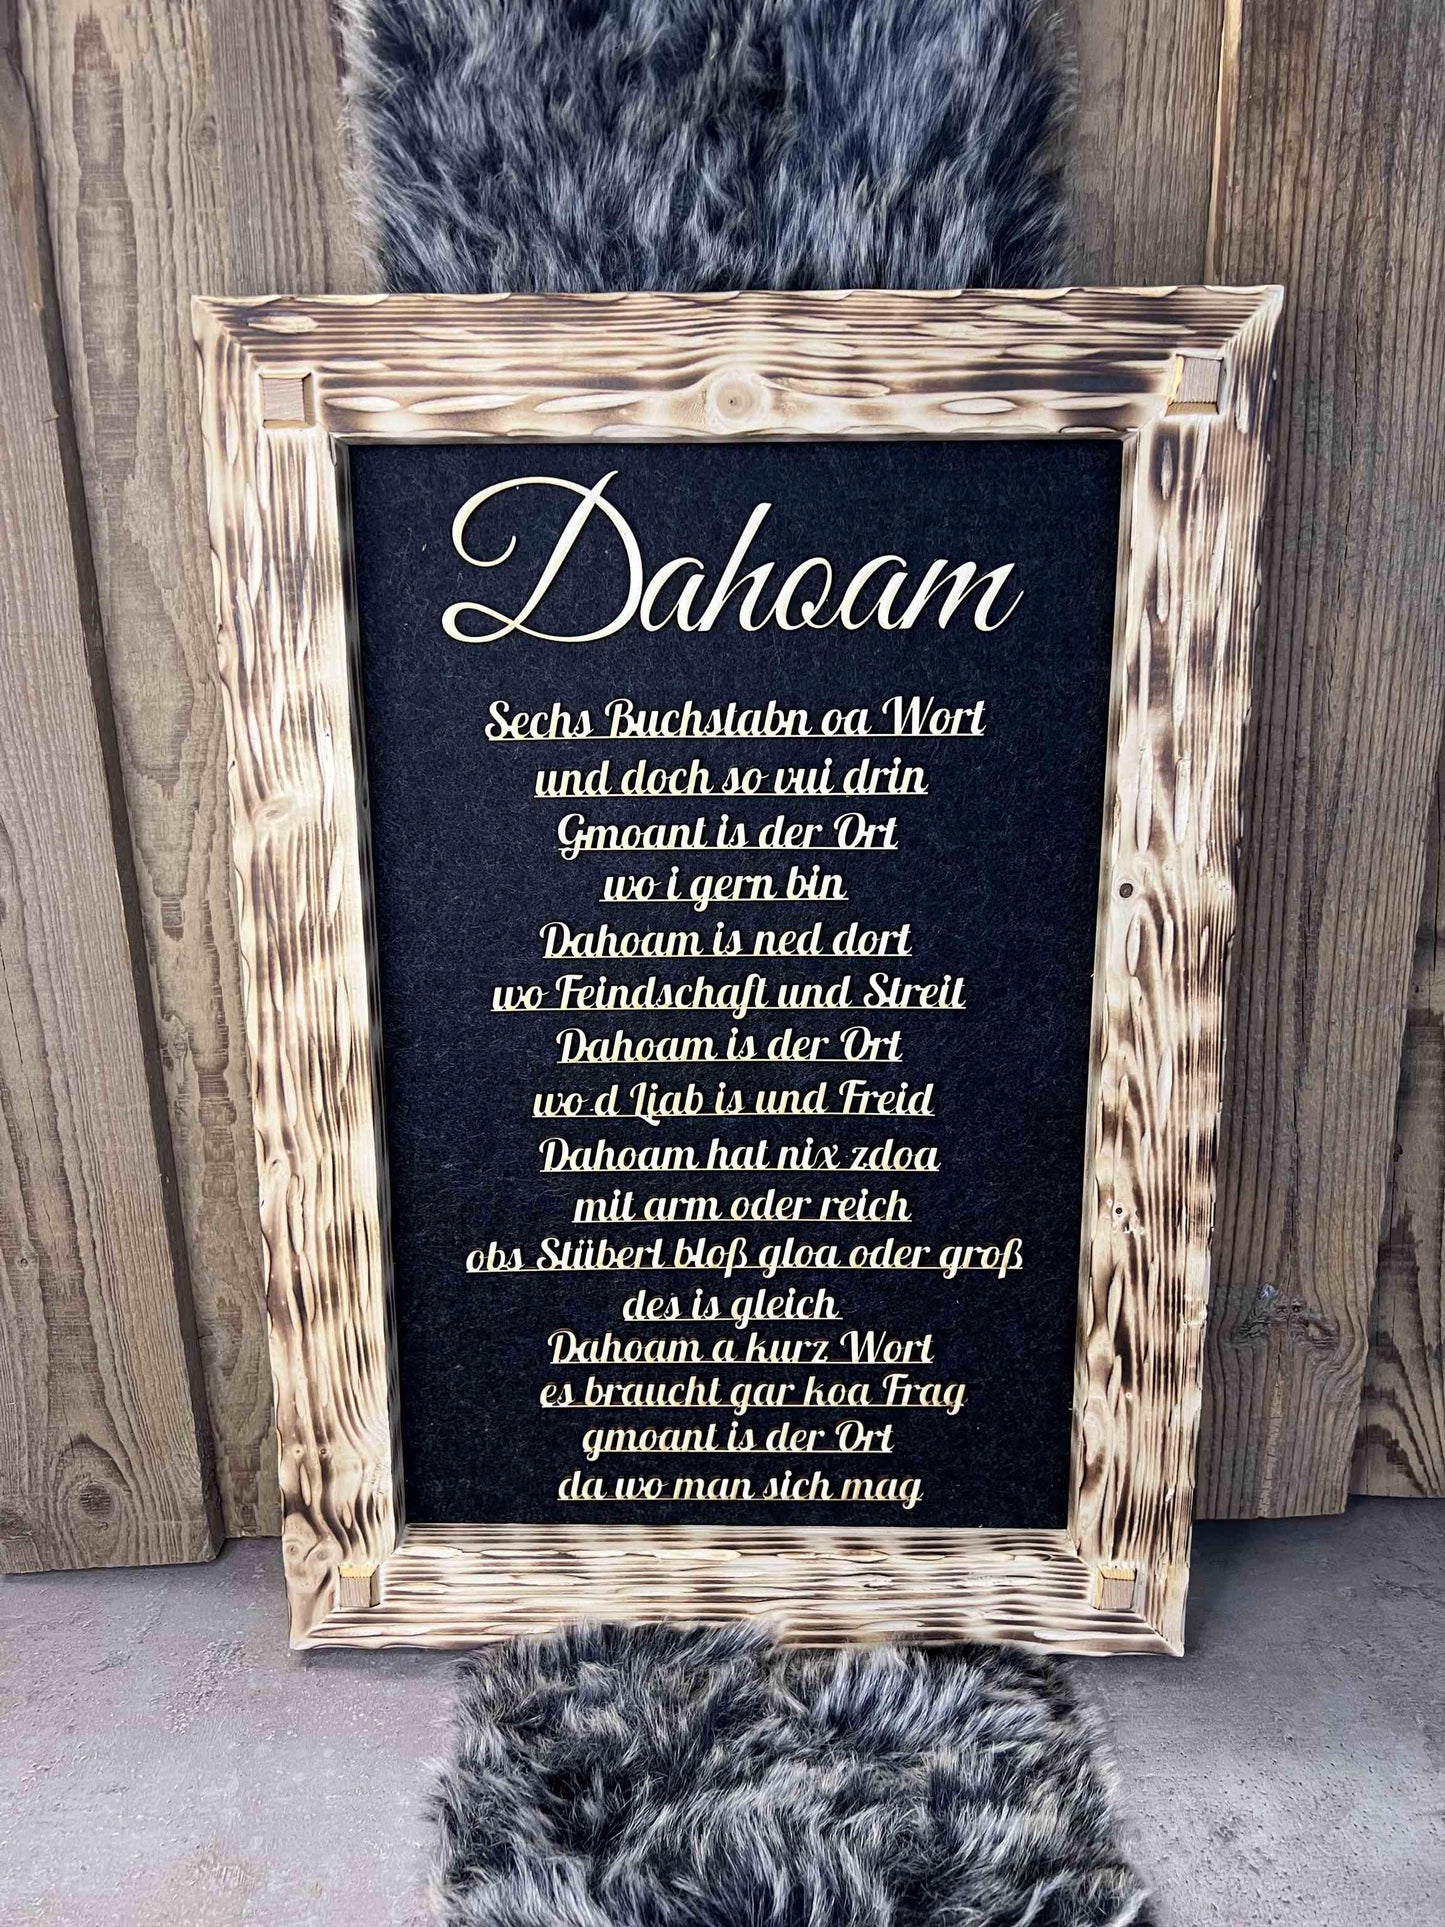 Dahoam
Sechs Buchstabn oa Wort
und doch so vui drin
Gmoant is der Ort
wo i gern bin
Dahoam is ned dort
wo Feindschaft und Streit
Dahoam is der Ort
wo d Liab is und Freid
Dahoam hat nix zdoa
mit arm oder reich
obs Stüberl bloß gloa oder groß
des is gleich
Dahoam a kurz Wort
es braucht gar koa Frag
gmoant is der Ort
da wo man sich mag